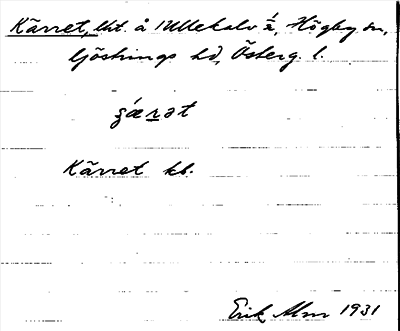 Kärret, lht. å Ullekalv ½, Högby sn,
Göstrings hd, Österg. l.
ʂæ̀rət
Kärret kb.
Erik Alm 1931